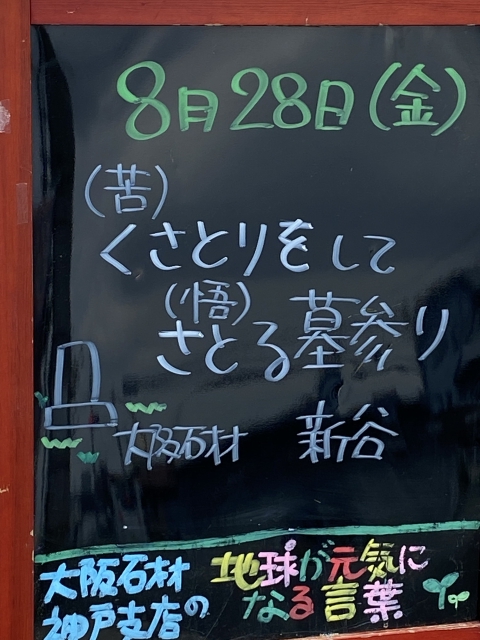 8月28日(金)
(苦)
くさとりをして
(悟)
さとる墓参り
大阪石材 新谷
大阪石材 地球が元気に
神戸支店の なる言葉